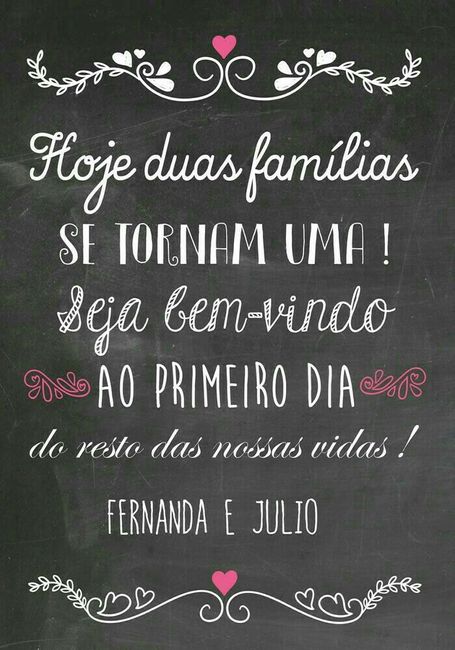 Hoje duas famílias
SE TORNAM UMA !
Seja bem-vindo
AO PRIMEIRO DIA
do resto das nossas vidas !
FERNANDA E JULIO